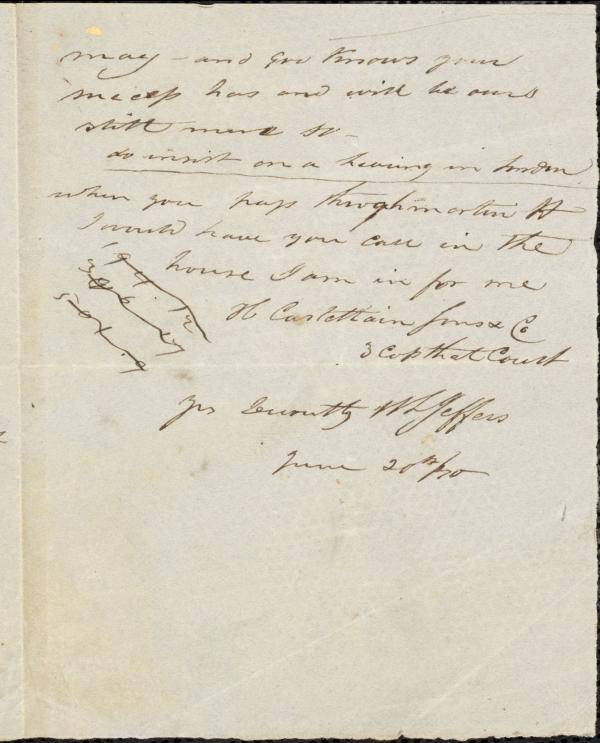 may - and God Knows your
success has and will be ours
still more so -
do insist on a hearing in London.
when you pass Throghmorton St
I would have you call in the
house I am in for me
H Castellain Sons & Co
3 Copthal Court
yrs devoutly W L Jeffers
June 20th/40